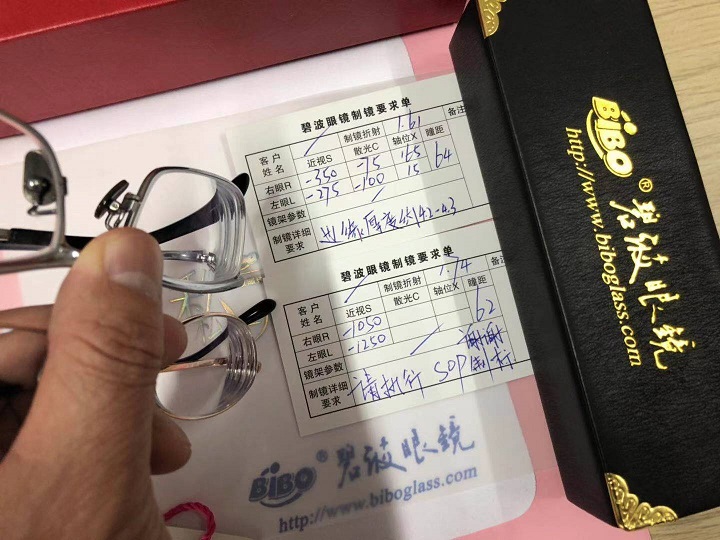 碧波眼镜制镜要求单
客户姓名 制镜折射 1.61 备注
近视S 散光C 轴位X 瞳距
右眼R -350 -75 165 64
左眼L -275 -100 15
镜架参数
制镜详细要求 边缘厚度约4.2-4.3
碧波眼镜制镜要求单
客户姓名 制镜折射 1.74 备注
近视S 散光C 轴位X 瞳距
右眼R -1050 62
左眼L -1250
镜架参数
制镜详细要求 请执行 SOP 制作 谢谢
BiBO® 碧波眼镜
http://www.biboglass.com
BiBO® 碧波眼镜
http://www.biboglass.com